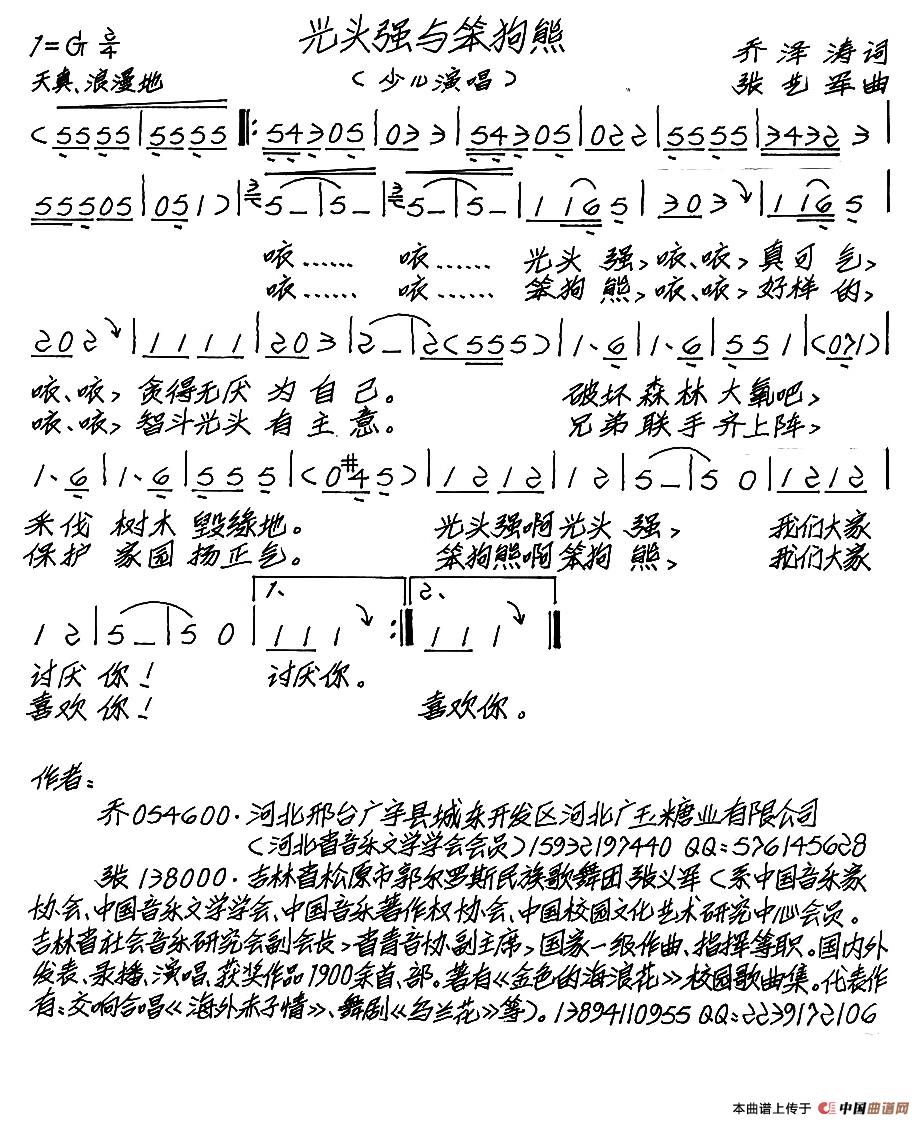 光头强与笨狗熊
1=G 2/4
天真、浪漫地
(少儿演唱)
乔泽涛词
张艺军曲
(5555|5555 ‖:54305|033|54305|022|5555|34323|
55505|051)|5–|5–|5–|5–|1165|303|1165|
咴…… 咴…… 光头强,咴、咴,真可气,
咴…… 咴…… 笨狗熊,咴、咴,好样的,
202|1111|203|2–|2(555)|1、6|1、6|551|(071)|
咴、咴,贪得无厌为自己。 破坏森林大氧吧,
咴、咴,智斗光头有主意。 兄弟联手齐上阵,
1、6|1、6|555|(0#45)|1212|12|5–|50|1212|
采伐树木毁绿地。 光头强啊光头强, 我们大家
保护家园扬正气。 笨狗熊啊笨狗熊, 我们大家
12|5–|50|1、111:‖2、111‖
讨厌你! 讨厌你。
喜欢你! 喜欢你。
作者:
乔054600·河北邢台广宗县城东开发区河北广玉糖业有限公司
(河北省音乐文学学会会员)15932197440 QQ:576145628
张138000·吉林省松原市郭尔罗斯民族歌舞团 张义军(系中国音乐家
协会、中国音乐文学学会、中国音乐著作权协会、中国校园文化艺术研究中心会员。
吉林省社会音乐研究会副会长,省青音协副主席,国家一级作曲、指挥等职。国内外
发表、录播、演唱、获奖作品1900余首、部。著有《金色的海浪花》校园歌曲集。代表作
有:交响合唱《海外赤子情》、舞剧《乌兰花》等)。13894110955 QQ:2239172106
本曲谱上传于 中国曲谱网